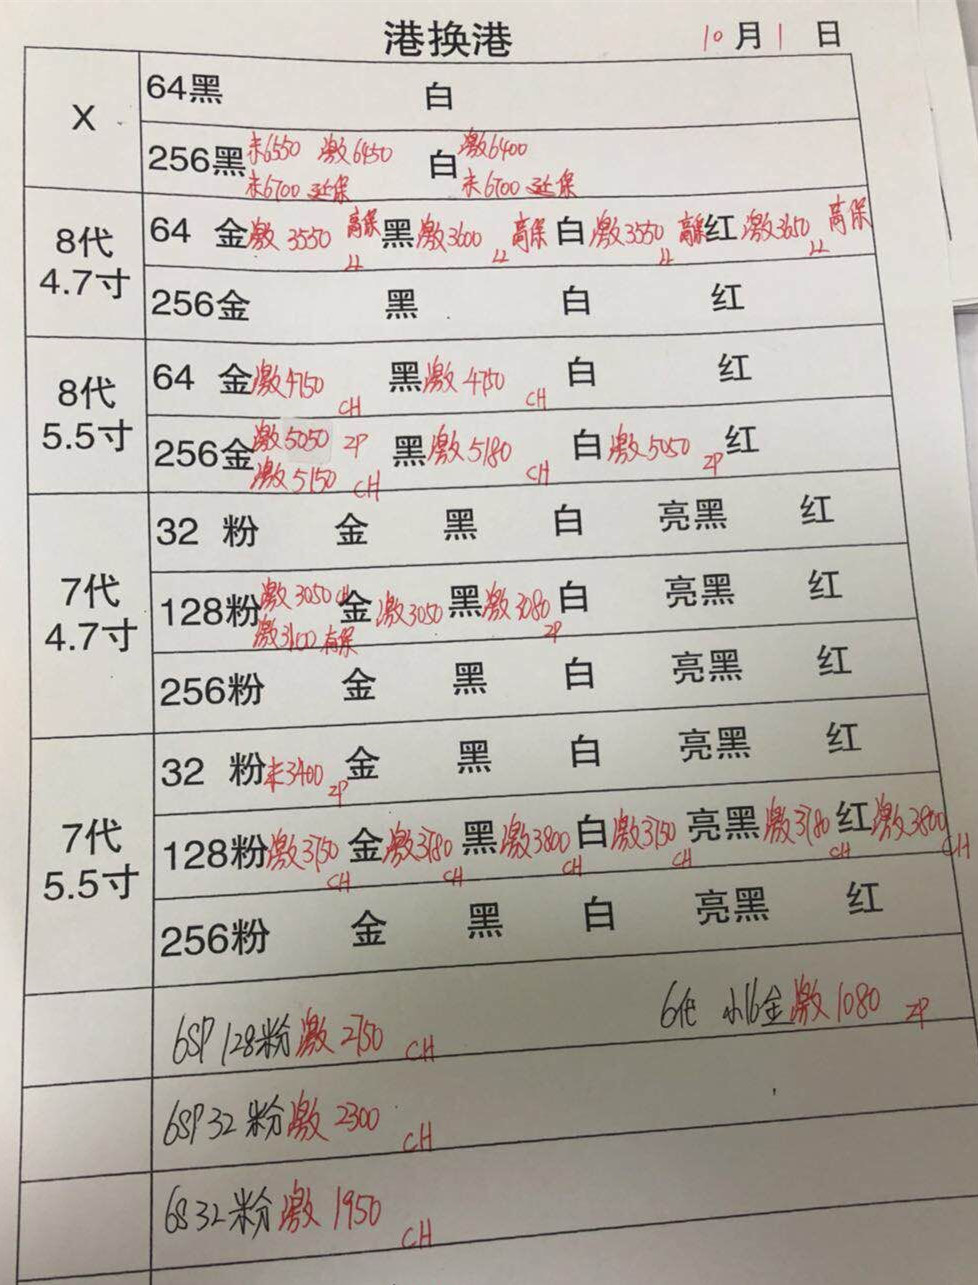 港换港 10月1日
X
64黑 白
256黑 未6550 激6450 白 激6400
未6700 延保 未6700 延保
8代
4.7寸
64 金 激3550 高保 LL 黑 激3600 高保 LL 白 激3550 高保 LL 红 激3650 高保 LL
256金 黑 白 红
8代
5.5寸
64 金 激4750 CH 黑 激4750 CH 白 红
256金 激5050 ZP 黑 激5180 CH 白 激5050 ZP 红
激5150 CH
7代
4.7寸
32 粉 金 黑 白 亮黑 红
128粉 激3050 CH 金 激3050 黑 激3080 ZP 白 亮黑 红
激3100 有保
256粉 金 黑 白 亮黑 红
7代
5.5寸
32 粉 未3400 ZP 金 黑 白 亮黑 红
128粉 激3750 CH 金 激3780 CH 黑 激3800 CH 白 激3750 CH 亮黑 激3780 CH 红 激3800 CH
256粉 金 黑 白 亮黑 红
6SP 128粉 激2750 CH 6代 小16金 激1080 ZP
6SP 32 粉 激2300 CH
6S 32 粉 激1950 CH